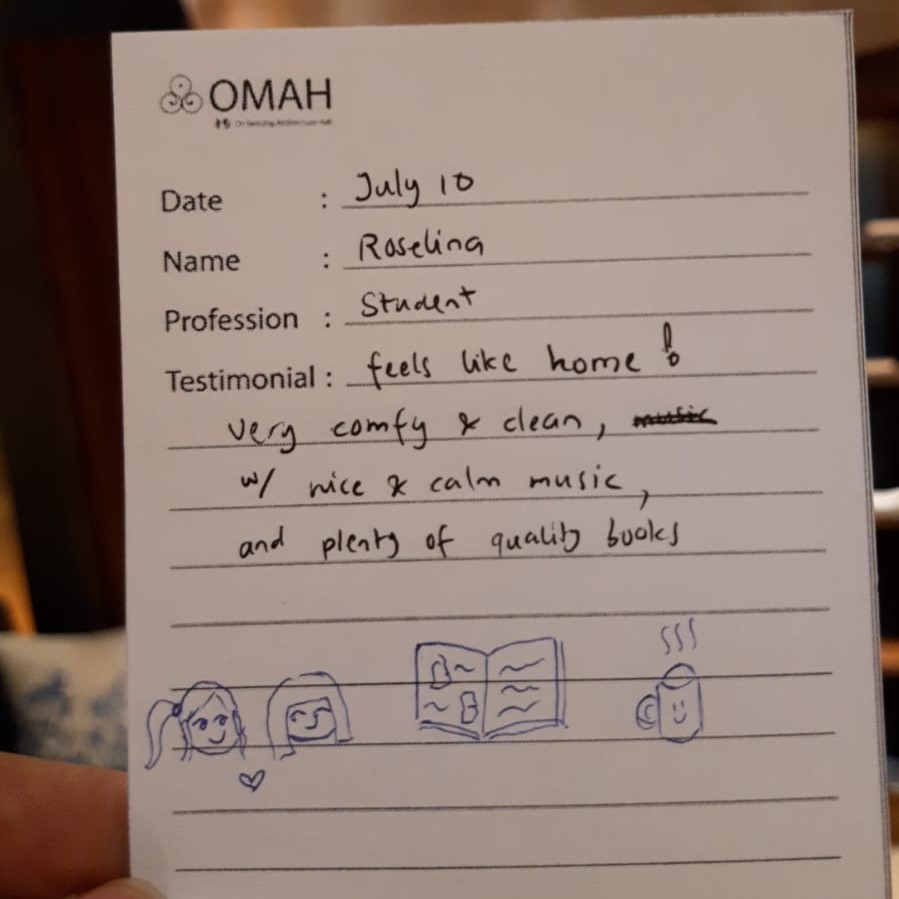 OMAH
Date : July 10
Name : Roselina
Profession : Student
Testimonial : feels like home!
very comfy & clean,
w/ nice & calm music,
and plenty of quality books